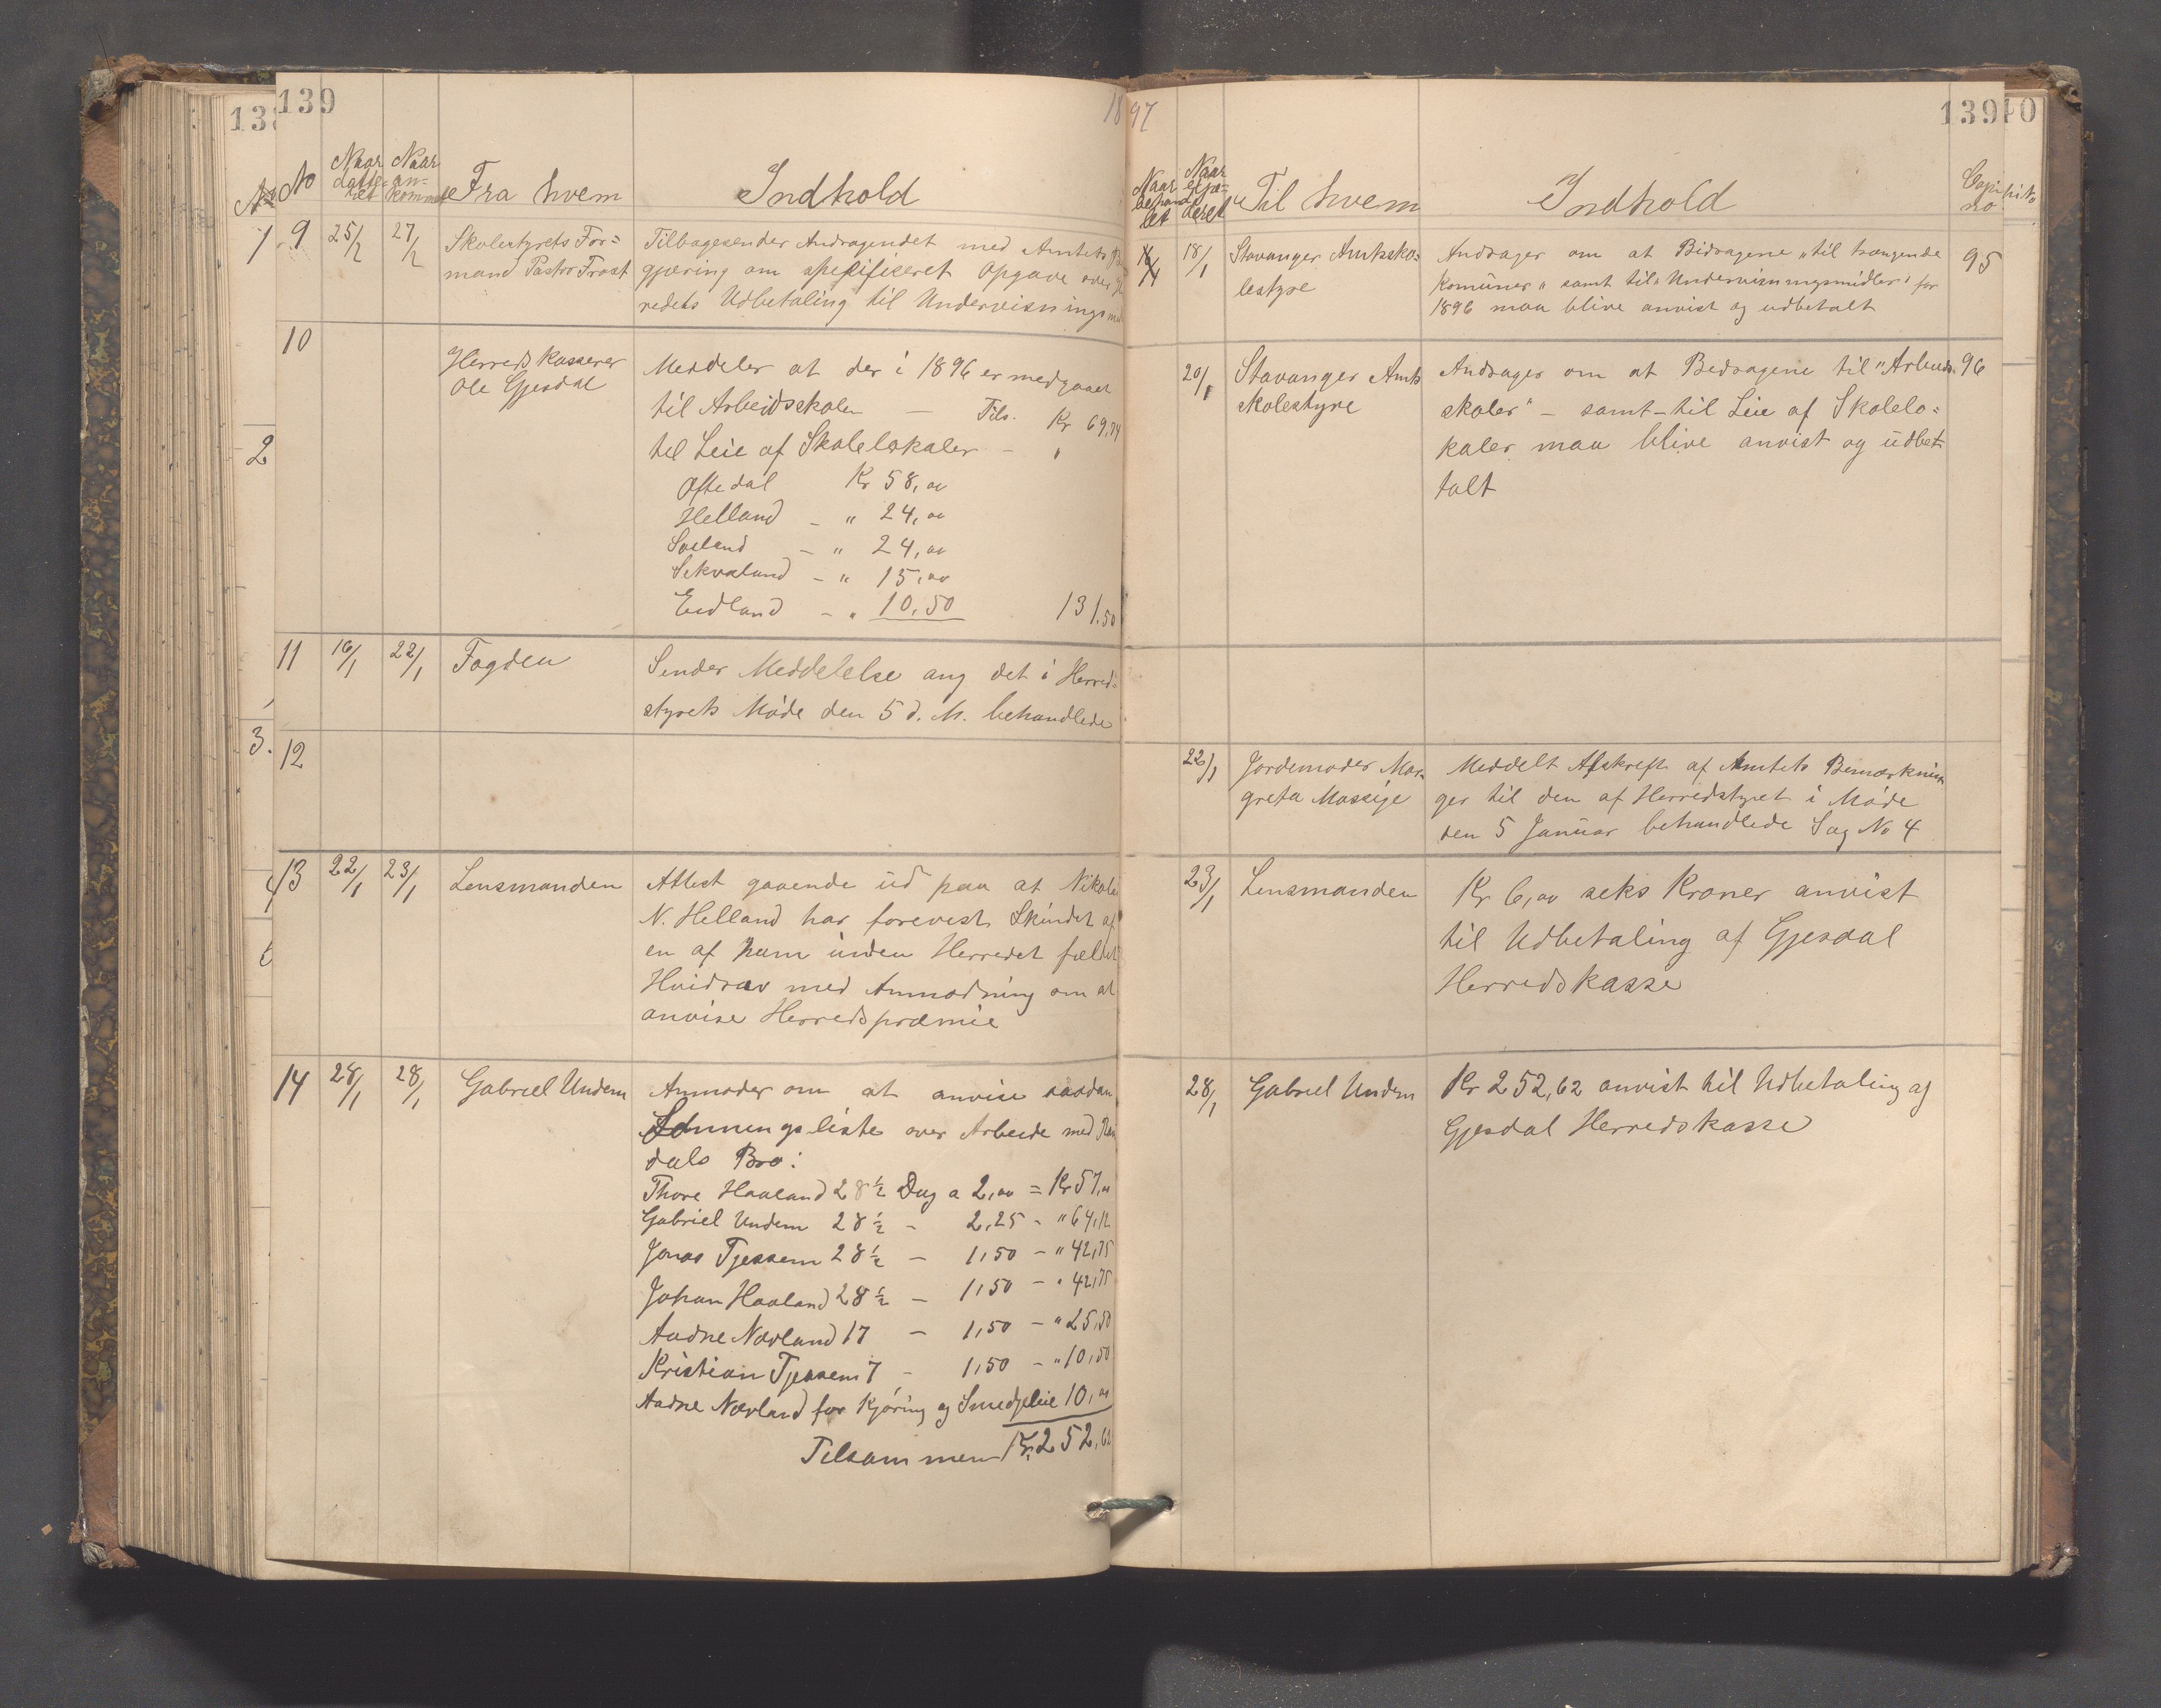 139
1897
139
No
Naar datte= ret
Naar an= kommet
Fra hvem
Indhold
9
25/2
27/2
Skolestyrets For=
mand Pastor Frost
Tilbagesender Andragendet med Amtets
gjæring om spesifiseret Opgave over
redets Udbetaling til Undervisnings
10
Herredskasserer
Ole Gjesdal
Meddeler at der i 1896 er medgaaet
til Arbeidsskolen — Tils. Kr 69,74
til Leie af Skolelokaler - "
Oftedal Kr 58,00
Helland - " 24,00
Soeland - " 24,00
Sekvaland - " 15,00
Eidland - " 10,50 131,50
11
16/1
22/1
Fogden
Sender Meddelelse ang det i Herred=
styrets Møde den 5 d. M. behandlede
12
13
22/1
23/1
Lensmanden
Attest gaaende ud paa at Nikolai
N. Helland har forevist Skindet af
en af ham inden Herredet fældet
Hvidræv med Anmodning om at
anvise Herredspræmie
14
28/1
28/1
Gabriel Undem
Anmoder om at anvise saadan
Lønningsliste over Arbeide med
dals Bro:
Thore Haaland 28½ Dag a 2,00 = Kr 57,00
Gabriel Undem 28½ - 2,25 - " 64,12
Jonas Tjessem 28½ - 1,50 - " 42,75
Johan Haaland 28½ - 1,50 - " 42,75
Aadne Nævland 17 - 1,50 - " 25,50
Kristian Tjessem 7 - 1,50 - " 10,50
Aadne Nævland for Kjøring og Smedjeleie 10,00
Tilsammen Kr. 252,62
Naar behand let
Naar expe= deret
Til hvem
Indhold
Copi no
18/1
Stavanger Amtssko=
lestyre
Andrager om at Bidragene „til trængende
Komüner" samt til „Undervisningsmidler" for
1896 maa blive anvist og udbetalt
95
20/1
Stavanger Amts
skolestyre
Andrager om at Bedragene til "Arbeids
skoler" - samt-til Leie af Skolelo=
kaler maa blive anvist og üdbet
talt
96
22/1
Jordemoder Mar=
greta Mossige
Meddelt Afskrift af Amtets Bemærknin
ger til den af Herredstyret i Møde
den 5 Januar behandlede Sag No 4
23/1
Lensmanden
Kr 6,00 seks Kroner anvist
til Udbetaling af Gjesdal
Herredskasse
28/1
Gabriel Undem
Kr 252,62 anvist til Udbetaling af
Gjesdal Herredskasse